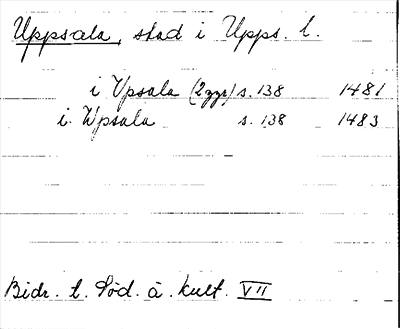 Uppsala, stad i Upps. l.
i Vpsala (2ggr) s. 138 1481
i Wpsala s. 138 1483
Bidr. t. Söd. à. kult. VII